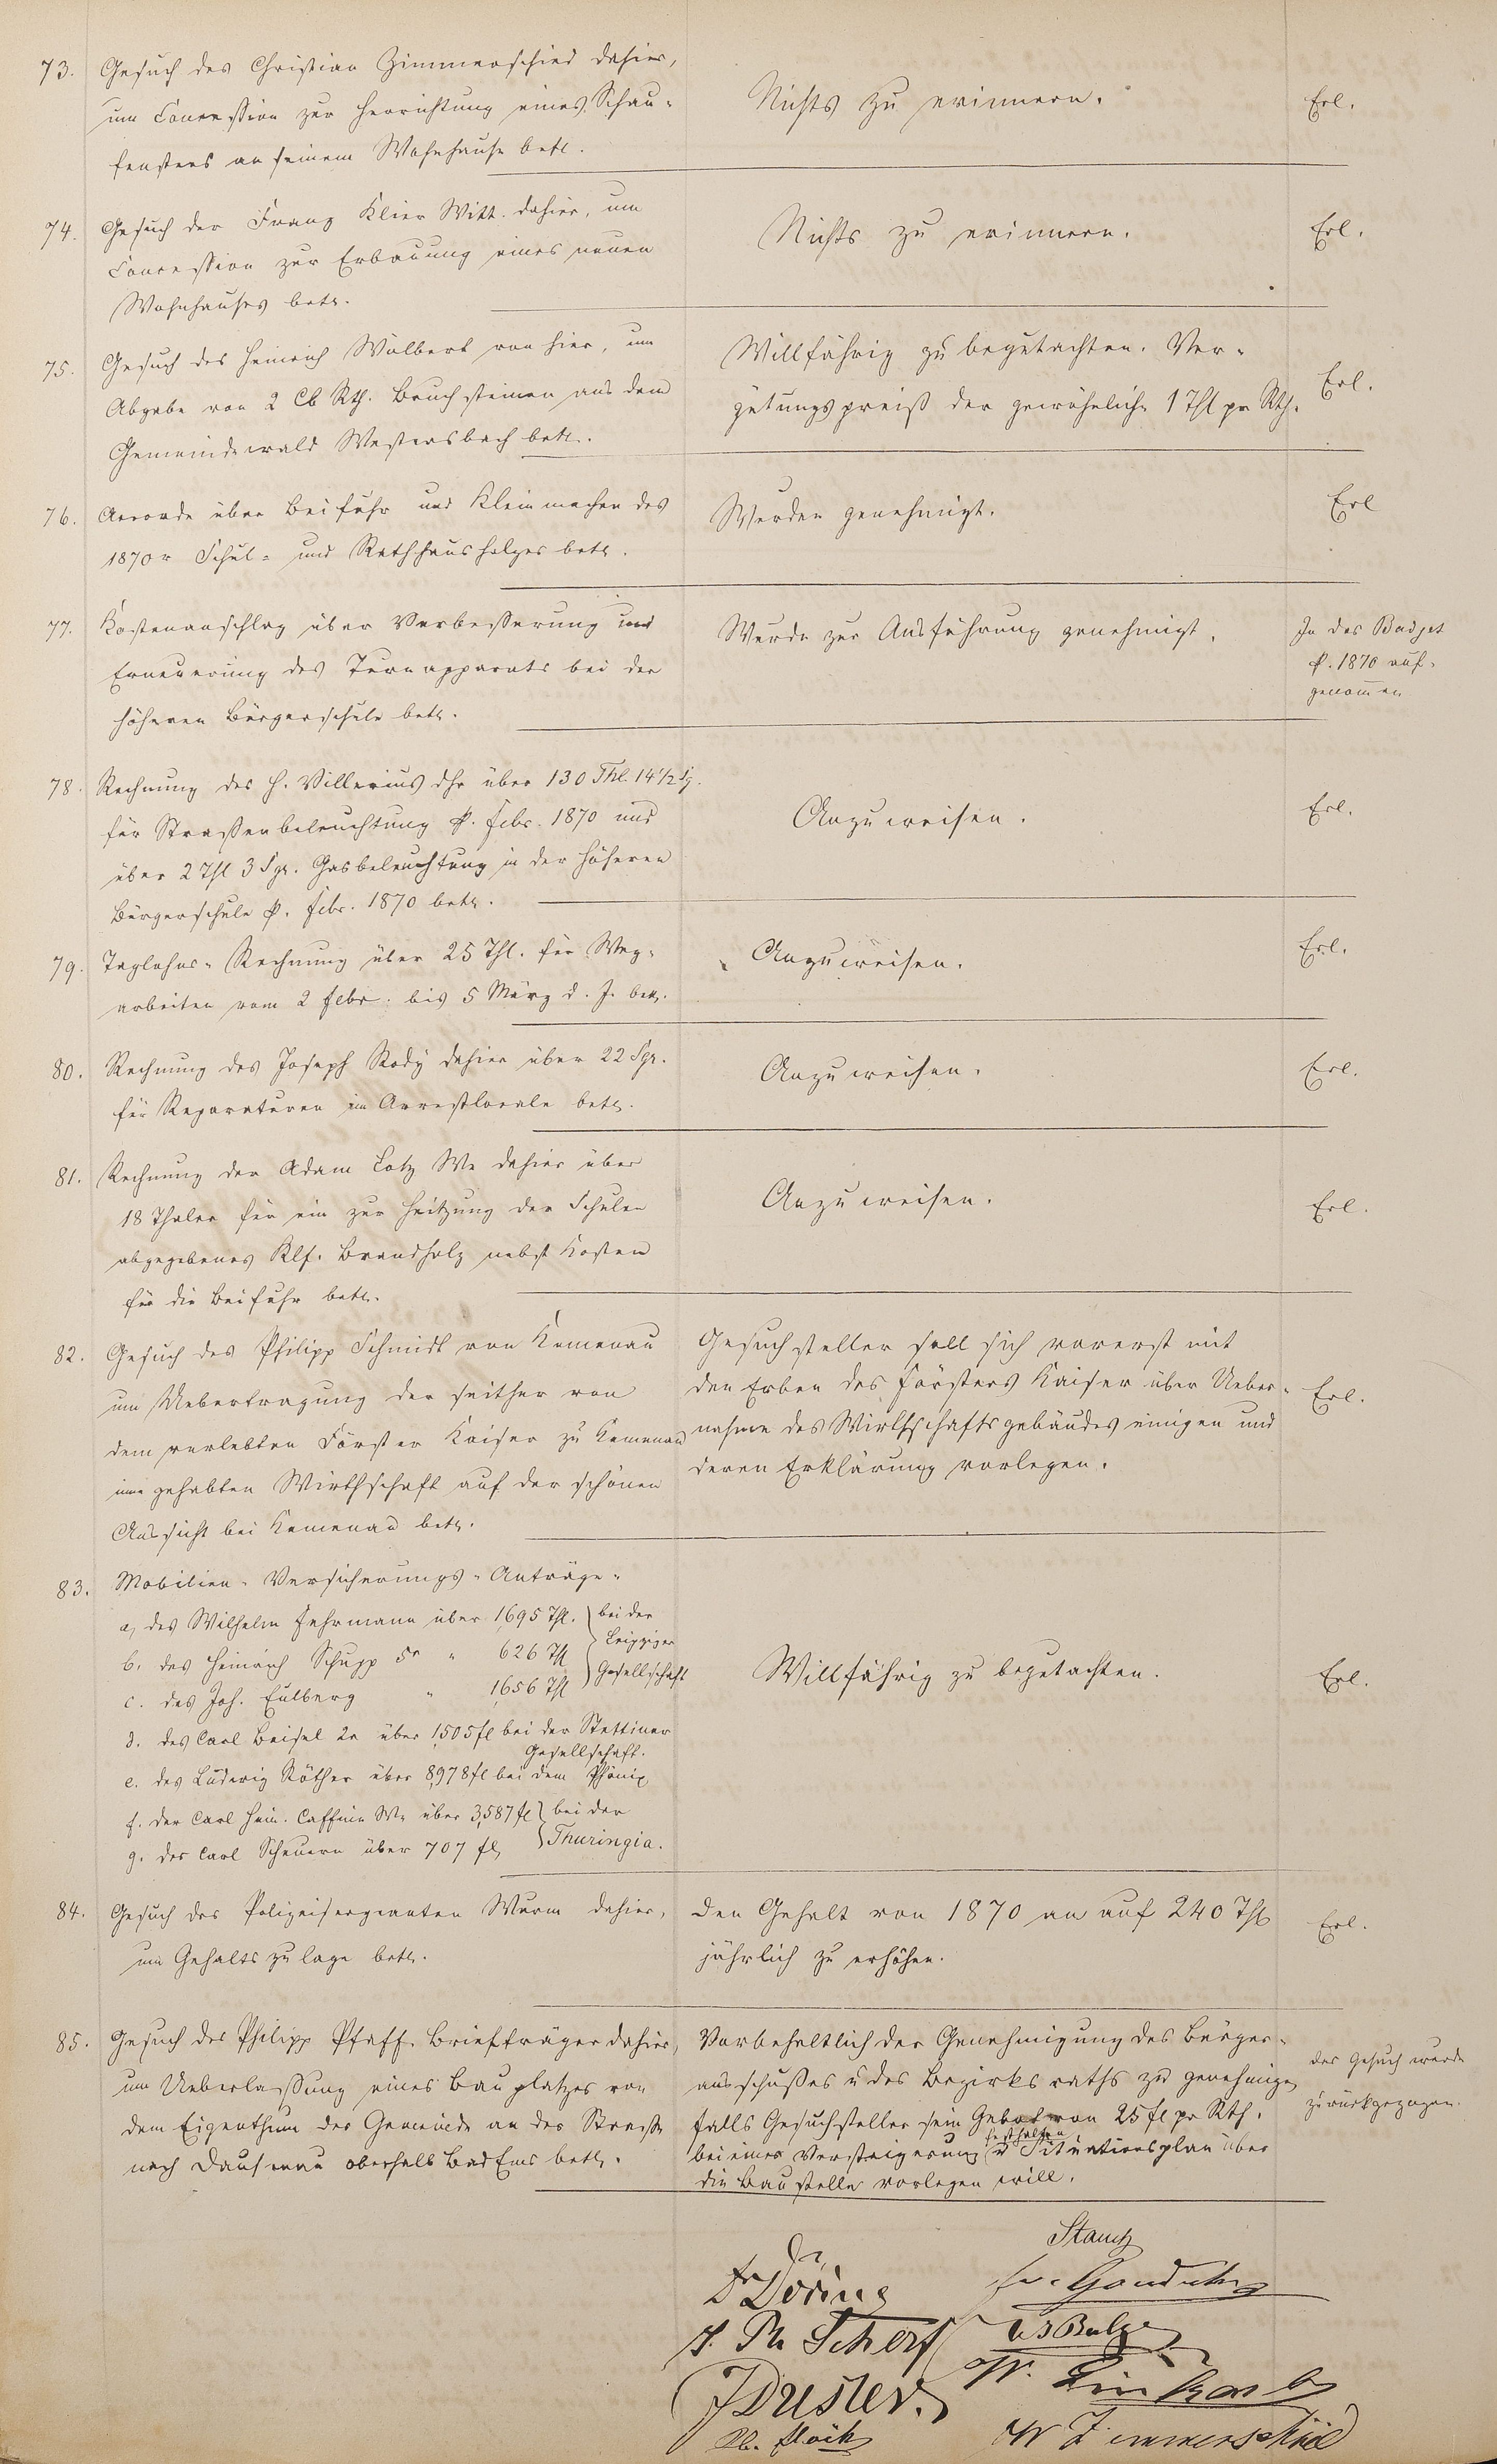 73. Gesuch des Christian Zimmerschied dahier,
um Concession zur Herrichtung eines Schau-
fensters an seinem Wohnhause betr.
Nichts zu erinnern.
Erl.
74. Gesuch der Franz Klier Witt. dahier, um
Concession zur Erbauung eines neuen
Wohnhauses betr.
Nichts zu erinnern.
Erl.
75. Gesuch des Heinrich Wolbert von hier, um
Abgabe von 2 Cb Rth. Bruchsteinen aus dem
Gemeindewald Westersbach betr.
Willfährig zu begutachten. Ver-
gütungspreiß der gewöhnliche 1 Thl pr Rth.
Erl.
76. Accorde über Beifuhr und Kleinmachen des
1870r Schul- und Rathhausholzes betr.
Werden genehmigt.
Erl
77. Kostenanschlag über Verbesserung und
Erneuerung des Turnapparats bei der
höheren Bürgerschule betr.
Wurde zur Ausführung genehmigt.
In das Badget
p. 1870 auf-
genommen
78. Rechnung des H. Villerius dhr über 130 Thl. 14 1/2 Sg.
für Straßenbeleuchtung p. Febr. 1870 und
über 2 Thl 3 Sgr. Gasbeleuchtung in der höheren
Bürgerschule p. Febr. 1870 betr.
Anzuweisen.
Erl.
79. Taglohns-Rechnung über 25 Thl. für Weg-
arbeiten vom 2 Febr. bis 5 März d. J. betr.
Anzuweisen.
Erl.
80. Rechnung des Joseph Rody dahier über 22 Sgr.
für Reparaturen im Arrestlocale betr.
Anzuweisen.
Erl.
81. Rechnung der Adam Lotz We dahier über
18 Thaler für ein zur Heitzung der Schulen
abgegebenes Klf. Brandholz nebst Kosten
für die Beifuhr betr.
Anzuweisen.
Erl.
82. Gesuch des Philipp Schmidt von Kemenau
um Uebertragung der seither von
dem verlebten Förster Kaiser zu Kemenau
inne gehabten Wirthschaft auf der schönen
Aussicht bei Kemenau betr.
Gesuchsteller soll sich vorerst mit
den Erben des Försters Kaiser über Ueber-
nahme des Wirthschaftsgebäudes einigen und
deren Erklärung vorlegen.
Erl.
83. Mobilien-Versicherungs-Anträge-
a, des Wilhelm Fuhrmann über 1,695 Thl. bei der
b. des Heinrich Schupp 5r " 626 Thl Leipziger
c. des Joh. Eulberg " 1,656 Thl Gesellschaft
d. des Carl Beisel 2r über 1,505 fl bei der Stettiner
Gesellschaft.
e. des Ludwig Röther über 8,978 fl bei dem Phönix
f. der Carl Hein. Caffine We über 3,587 fl bei der
g. des Carl Scheuern über 707 fl, Thuringia.
Willfährig zu begutachten.
Erl.
84. Gesuch des Polizeisergeanten Wurm dahier,
um Gehaltszulage betr.
Den Gehalt von 1870 an auf 240 Thl
jährlich zu erhöhen.
Erl.
85. Gesuch des Philipp Pfaff. Briefträger dahier,
um Ueberlassung eines Bauplatzes von
dem Eigenthum der Gemeinde an der Strasse
nach Dausenau oberhalb Bad Ems betr.
Vorbehaltlich der Genehmigung des Bürger-
ausschußes u des Bezirksraths zu genehmigen
falls Gesuchsteller sein Gebot von 25 fl pr Rth.
festhalten
bei einer Versteigerung u Situationsplan über
die Baustelle vorlegen will.
das Gesuch wurde
zurückgezogen.
Stautz
Dr Döring
J. Ph Scherf
W. Linkenbach
W Zimmerschied